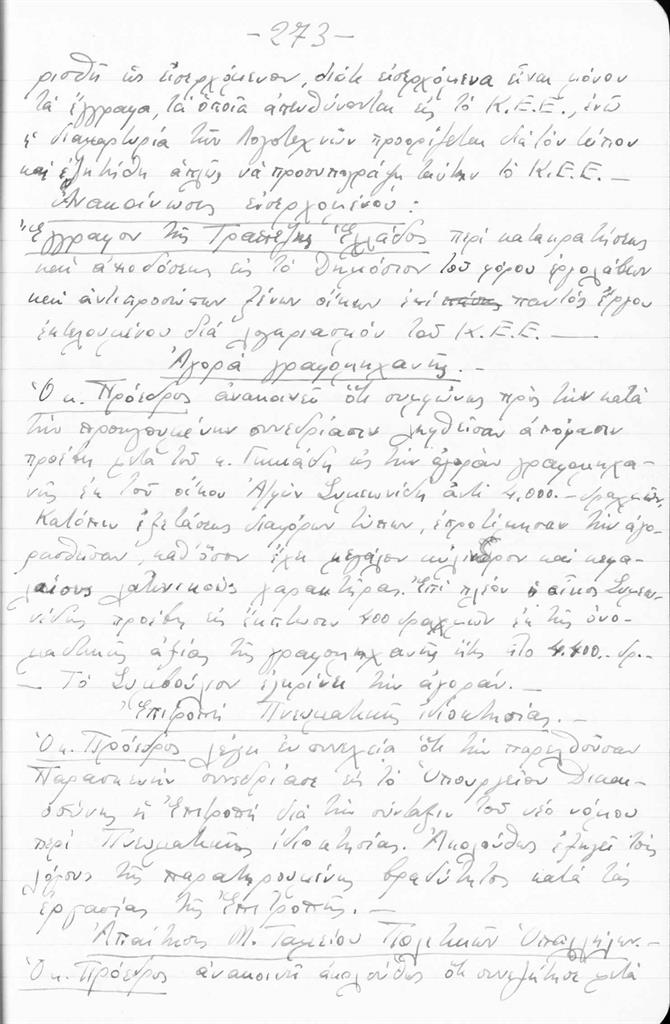 -273-
ρισθῇ ὡς εἰσερχόμενον, διότι εἰσερχόμενα εἶναι μόνον
τὰ ἔγγραφα, τὰ ὁποῖα ἀπευθύνονται εἰς τὸ Κ.Ε.Ε., ἐνῶ
ἡ διαμαρτυρία τῶν Λογοτεχνῶν προορίζεται διὰ τὸν τύπον
καὶ ἐζητήθη ἁπλῶς νὰ προσυπογράψῃ ταύτην τὸ Κ.Ε.Ε. —
Ἀνακοίνωσις εἰσερχομένου:
Ἔγγραφον τῆς Τραπέζης Ἑλλάδος περὶ κατακρατήσεως
καὶ ἀποδόσεως εἰς τὸ Δημόσιον τοῦ φόρου ἐργολάβων
καὶ ἀντιπροσώπων ξένων οἴκων ἐπὶ παντὸς ἔργου
ἐκτελουμένου διὰ λογαριασμὸν τοῦ Κ.Ε.Ε. —
Ἀγορὰ γραφομηχανῆς. —
Ὁ κ. Πρόεδρος ἀνακοινεῖ ὅτι συμφώνως πρὸς τὴν κατὰ
τὴν προηγουμένην συνεδρίασιν ληφθεῖσαν ἀπόφασιν
προέβη μετὰ τοῦ κ. εἰς τὴν ἀγορὰν γραφομηχα-
νῆς ἐκ τοῦ οἴκου Ἀφῶν Συμεωνίδη ἀντὶ 4.000.- δραχμῶν.
Κατόπιν ἐξετάσεως διαφόρων τύπων, ἐπροτίμησαν τὴν ἀγο-
ρασθεῖσαν, καθ' ὅσον ἔχει μεγάλον κύλινδρον καὶ κεφα-
λαίους λατινικοὺς χαρακτῆρας. Ἐπὶ πλέον ὁ οἶκος Συμεω-
νίδης προέβη εἰς ἔκπτωσιν 400 δραχμῶν ἐκ τῆς ὀνο-
μαστικῆς ἀξίας τῆς γραφομηχανῆς ἐκ 4.400.- δρ.-
— Τὸ Συμβούλιον ἐγκρίνει τὴν ἀγοράν. —
Ἐπιτροπὴ Πνευματικῆς ἰδιοκτησίας. —
Ὁ κ. Πρόεδρος λέγει ἐν συνεχείᾳ ὅτι τὴν παρελθοῦσαν
Παρασκευὴν συνεδρίασε εἰς τὸ Ὑπουργεῖον Δικαι-
οσύνης ἡ Ἐπιτροπὴ διὰ τὴν σύνταξιν τοῦ νέου νόμου
περὶ Πνευματικῆς ἰδιοκτησίας. Ἀκολούθως ἐξηγεῖ τοὺς
λόγους τῆς παρατηρουμένης βραδύτητος κατὰ τὰς
ἐργασίας τῆς Ἐπιτροπῆς. —
Ἀπαίτησις Μ. Ταμείου Πολιτικῶν Ὑπαλλήλων. —
Ὁ κ. Πρόεδρος ἀνακοινεῖ ἀκολούθως ὅτι συνεζήτησε μετὰ